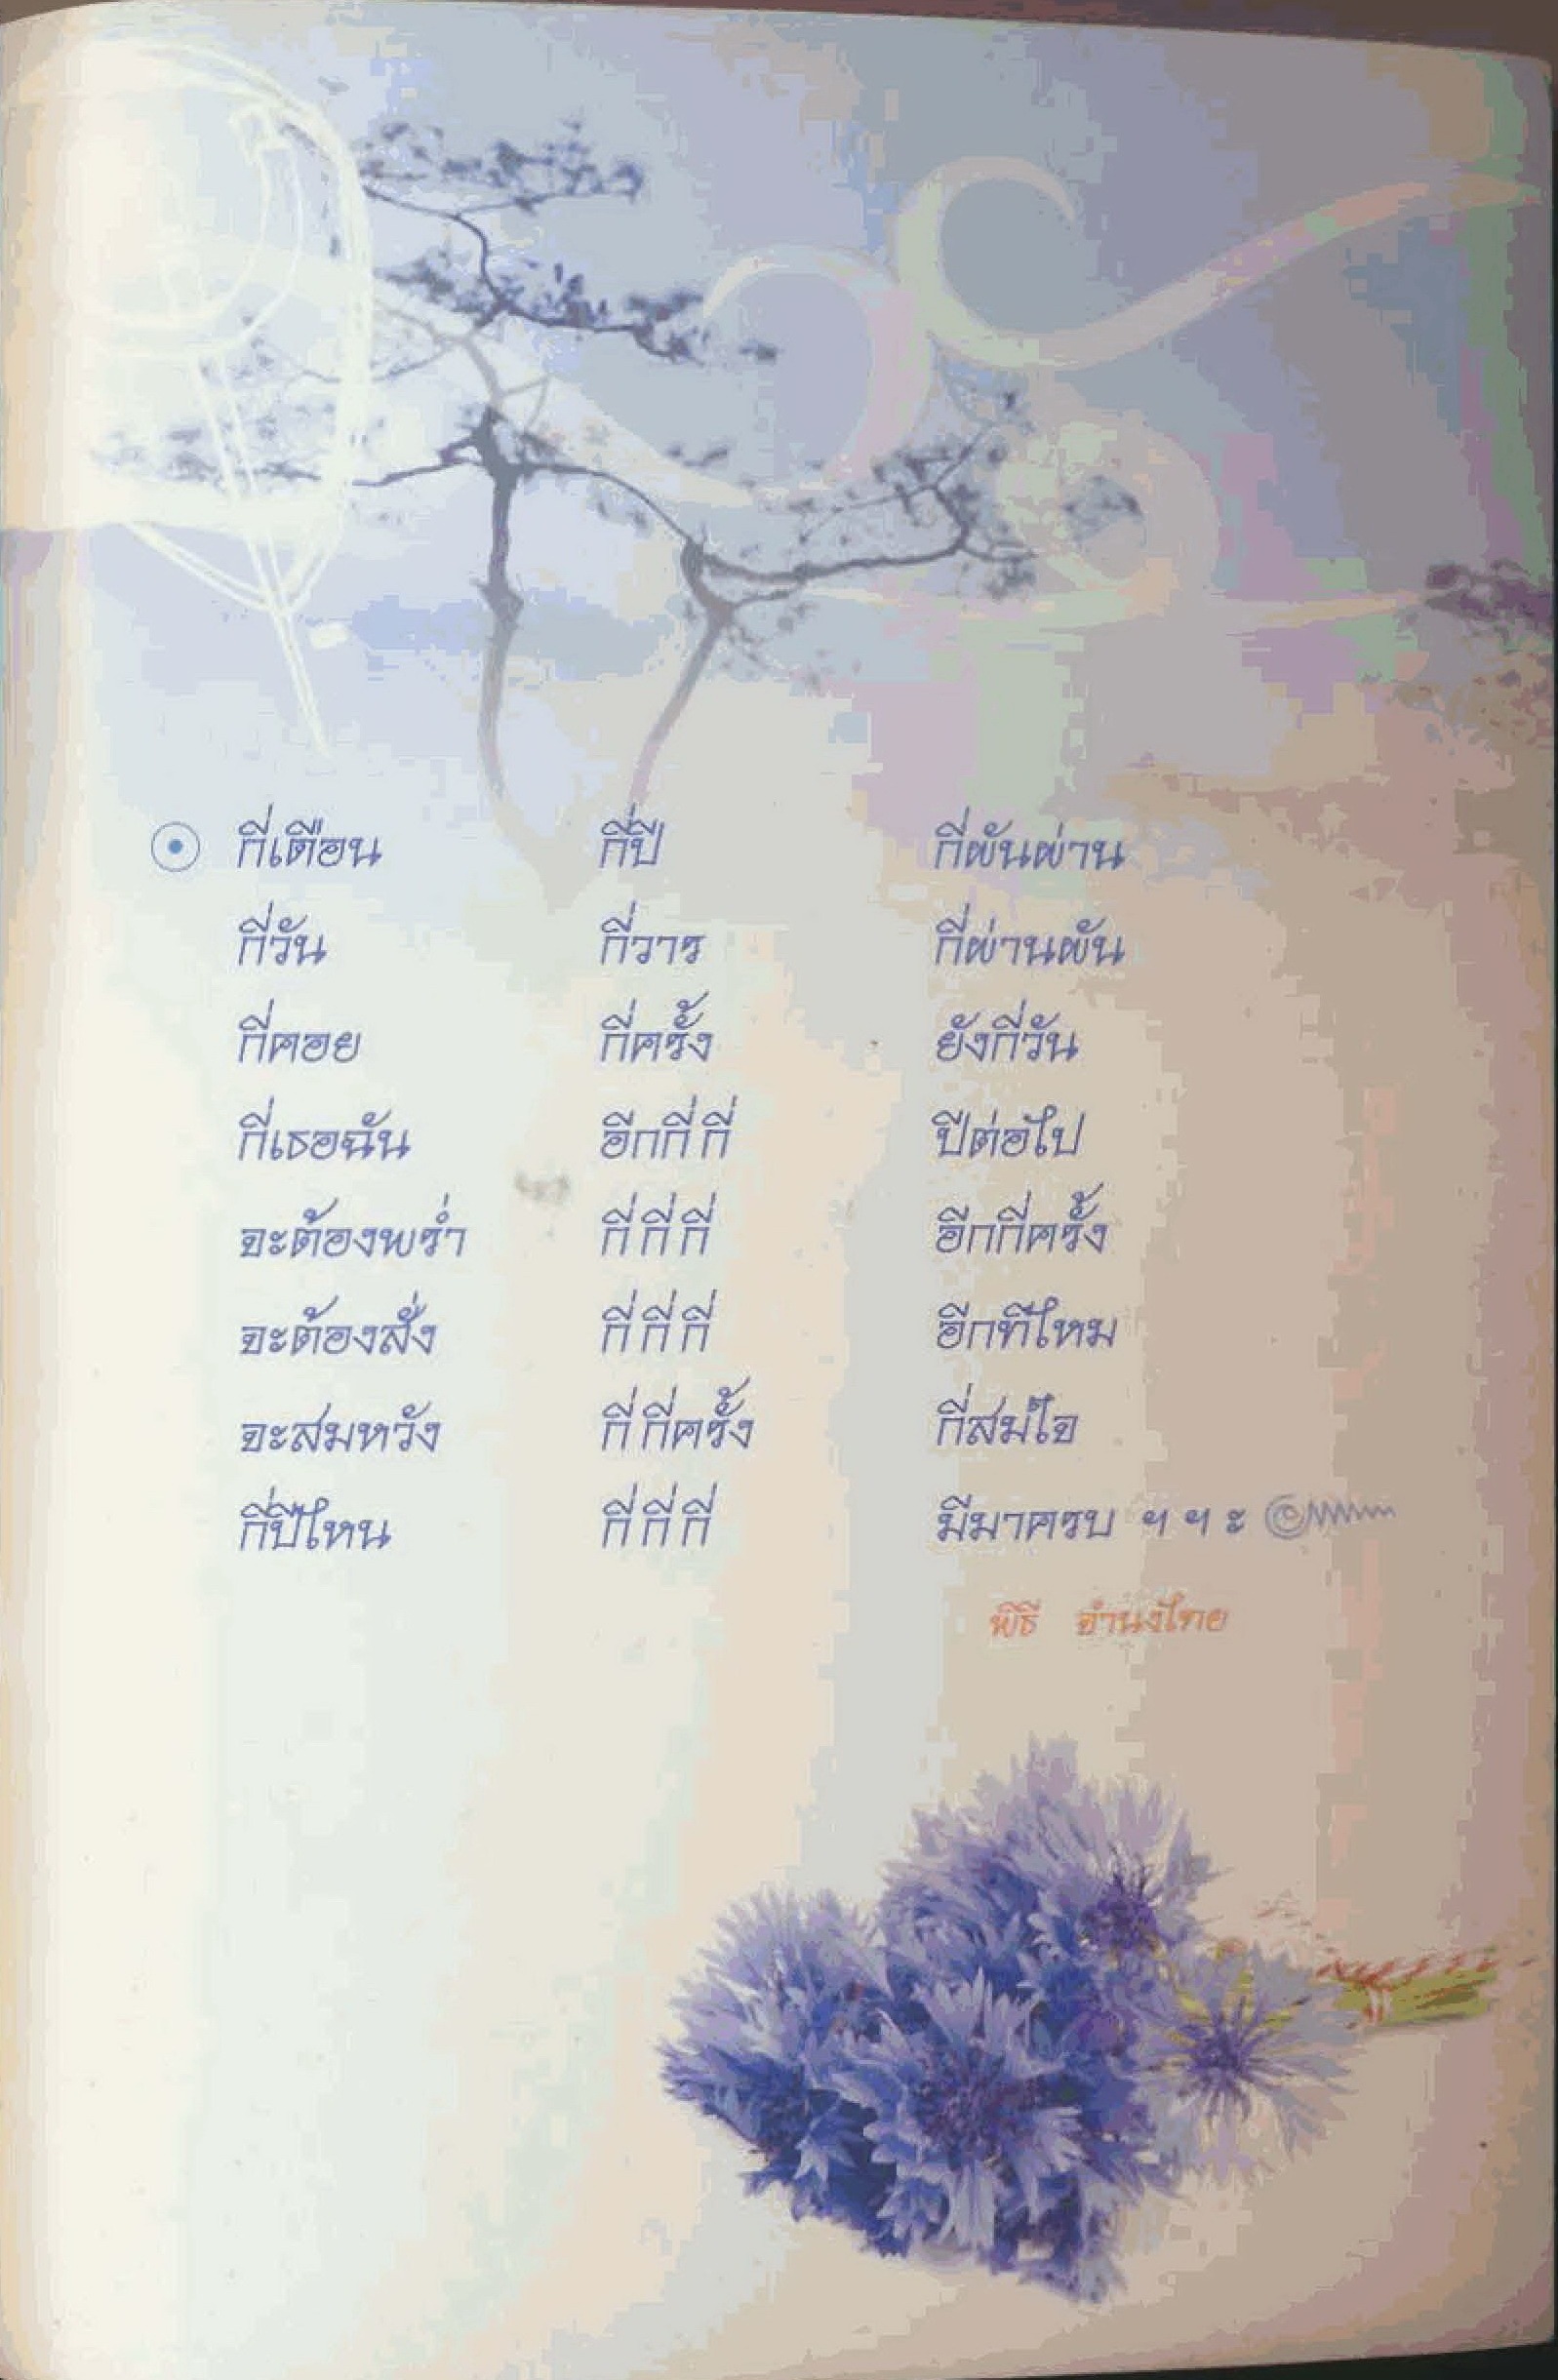 ๏ กี่เดือน กี่ปี กี่ผันผ่าน
กี่วัน กี่วาร กี่ผ่านผัน
กี่คอย กี่ครั้ง ยังกี่วัน
กี่เธอฉัน อีกกี่กี่ ปีต่อไป
จะต้องพร่ำ กี่กี่กี่ อีกกี่ครั้ง
จะต้องสั่ง กี่กี่กี่ อีกทีไหม
จะสมหวัง กี่กี่ครั้ง กี่สมใจ
กี่ปีไหน กี่กี่กี่ มีมาครบ ฯ ฯ ะ ๛
พิธี อำนงไทย